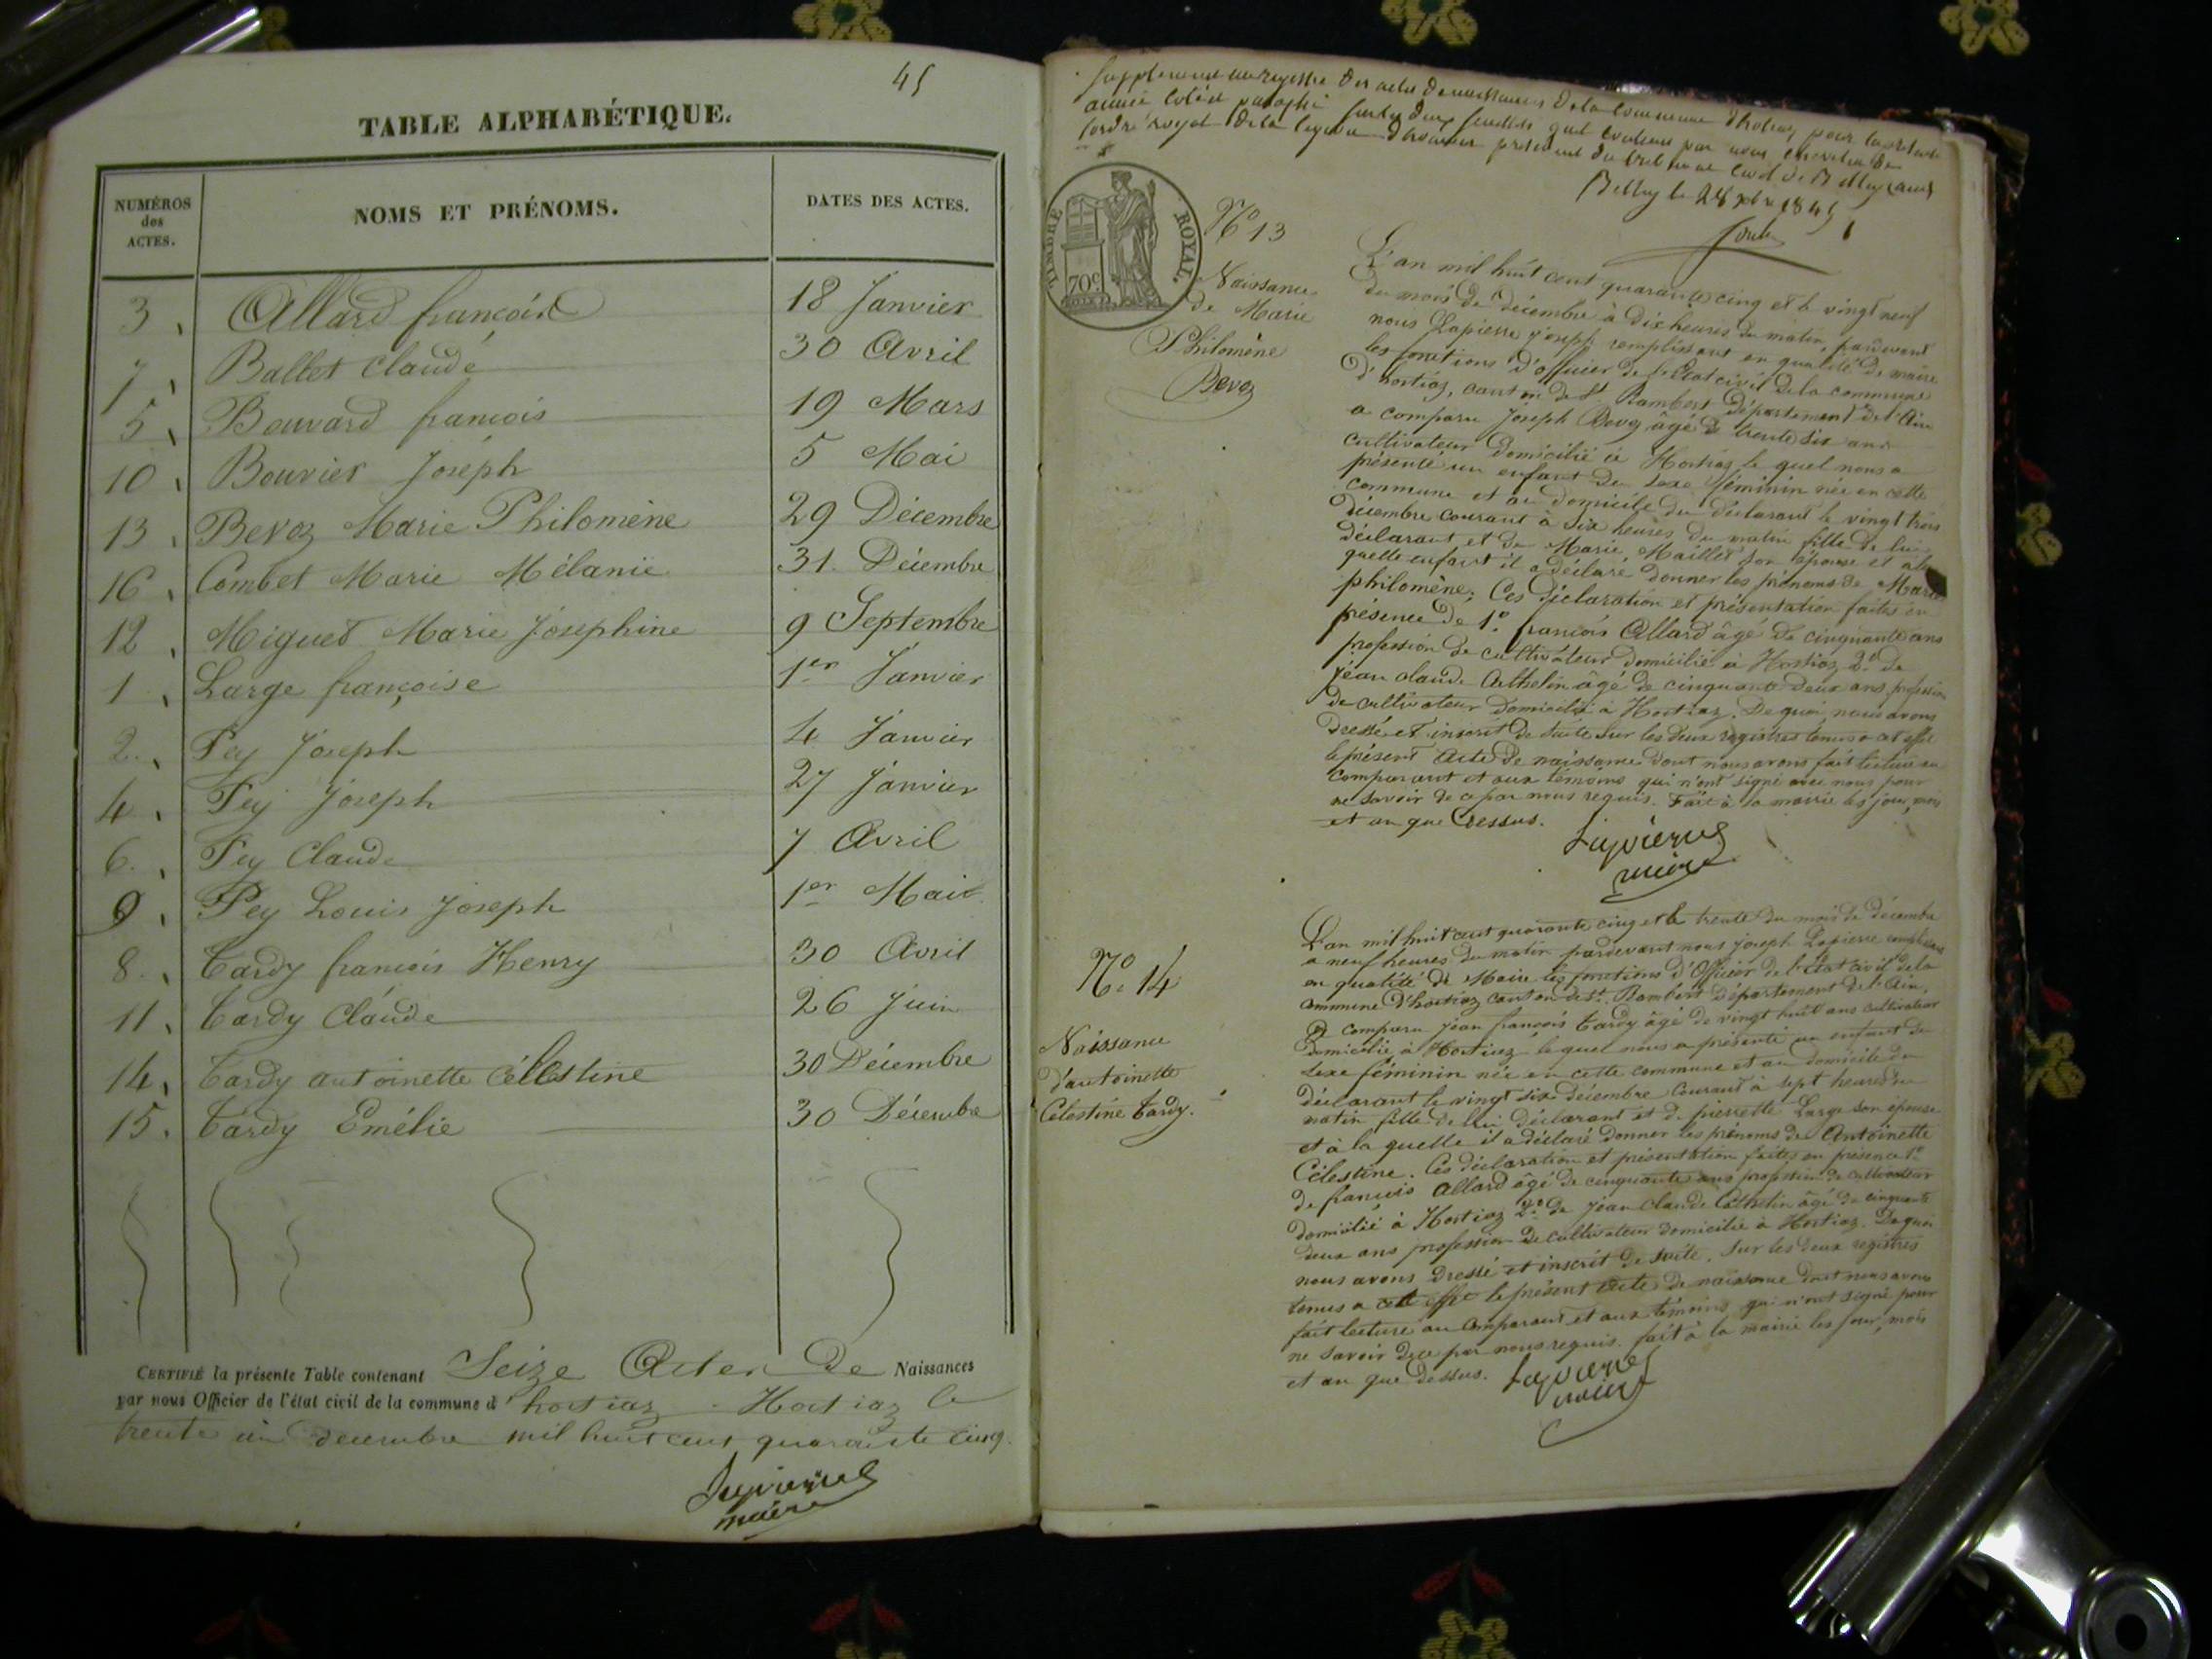 45
TABLE ALPHABÉTIQUE.
NUMÉROS des ACTES. NOMS ET PRÉNOMS. DATES DES ACTES.
3 Allard françois 18 Janvier
7 Ballet Claude 30 Avril
5 Bouvard francois 19 Mars
10 Bouvier Joseph 5 Mai
13 Bevoz Marie Philomène 29 Décembre
16 Combet Marie Mélanie 31 Décembre
12 Miguet Marie Joséphine 9 Septembre
1 Large françoise 1er Janvier
2 Pey Joseph 4 Janvier
4 Pey Joseph 27 Janvier
6 Pey Claude 7 Avril
9 Pey Louis Joseph 1er Mai
8 Tardy francois Henry 30 Avril
11 Tardy Claude 26 Juin
14 Tardy antoinette Célestine 30 Décembre
15 Tardy Emélie 30 Décembre
CERTIFIÉ la présente Table contenant Seize Actes de Naissances
par nous Officier de l'état civil de la commune d'hostiaz. Hostiaz le
trente un decembre mil huit cent quarante cinq.
maire
Supplement au registre des actes de naissances de la commune d'hostiaz pour la présente
année coté et paraphé
Belley le 28 xbre 1845
TIMBRE ROYAL.
70c
No 13
Naissance
de Marie
Philomène
Bevoz
L'an mil huit cent quarante cinq et le vingt neuf
du mois de Décembre à dix heures du matin, pardevant
nous Lapierre Joseph remplissant en qualité de maire
les fonctions d'officier de l'état civil de la commune
d'hostiaz, canton de St. Rambert département de l'Ain
a comparu Joseph Bevoz âgé de trente six ans
cultivateur domicilié à Hostiaz le quel nous a
présenté un enfant de sexe féminin née en cette
commune et au domicile du déclarant le vingt trois
décembre courant à six heures du matin fille de lui
déclarant et de Marie Maillet son épouse et à la
quelle enfant il a déclaré donner les prénoms de Marie
philomène; Ces déclaration et présentation faites en
présence de 1o. françois Allard âgé de cinquante ans
profession de cultivateur domicilié à Hostiaz 2o. de
Jean claude Cathelin âgé de cinquante deux ans profession
de cultivateur domicilié à Hostiaz. De quoi nous avons
dressé et inscrit de suite sur les deux registres tenus a cet effet
le présent Acte de naissance dont nous avons fait lecture au
comparant et aux témoins qui n'ont signé avec nous pour
ne savoir de ce par nous requis. Fait à la mairie les jour, mois
et an que dessus.
maire
No. 14
Naissance
d'antoinette
Célestine Tardy.
L'an mil huit cent quarante cinq et le trente du mois de décembre
a neuf heures du matin pardevant nous joseph Lapierre remplissant
en qualité de Maire les fonctions d'Officier de l'Etat civil de la
commune d'hostiaz canton de St. Rambert département de l'Ain,
A comparu jean françois Tardy âgé de vingt huit ans cultivateur
domicilié à Hostiaz le quel nous a présenté un enfant de
sexe féminin née en cette commune et au domicile du
déclarant le vingt six décembre courant à sept heures du
matin fille de lui déclarant et de pierrette Large son épouse
et à la quelle il a déclaré donner les prénoms de Antoinette
Célestine. Ces déclaration et présentation faites en présence 1o
de françois allard âgé de cinquante ans profession de cultivateur
domicilié à Hostiaz 2o. de jean Claude Cathelin âgé de cinquante
deux ans profession de cultivateur domicilié à Hostiaz. De quoi
nous avons dressé et inscrit de suite. Sur les deux registres
tenus a cet effet le présent acte de naissance dont nous avons
fait lecture au comparant et aux témoins qui n'ont signé pour
ne savoir de ce par nous requis. fait à la mairie les jour, mois
et an que dessus.
maire